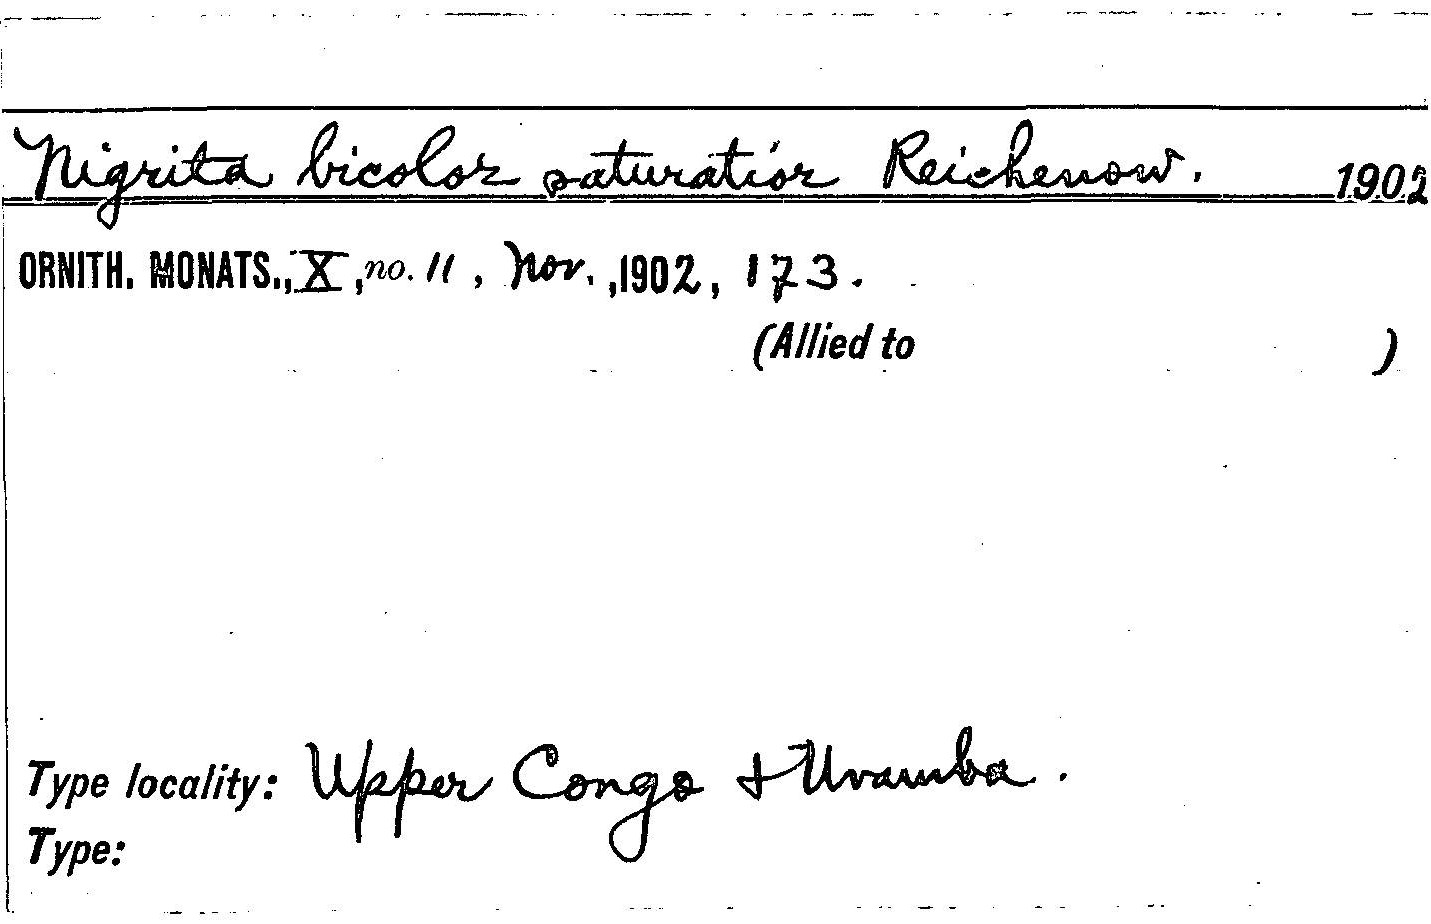 Nigrita bicolor saturatior Reichenow. 1902
ORNITH. MONATS., X, no. 11, Nov., 1902, 173.
(Allied to )
Type locality: Upper Congo & Uvamba.
Type: